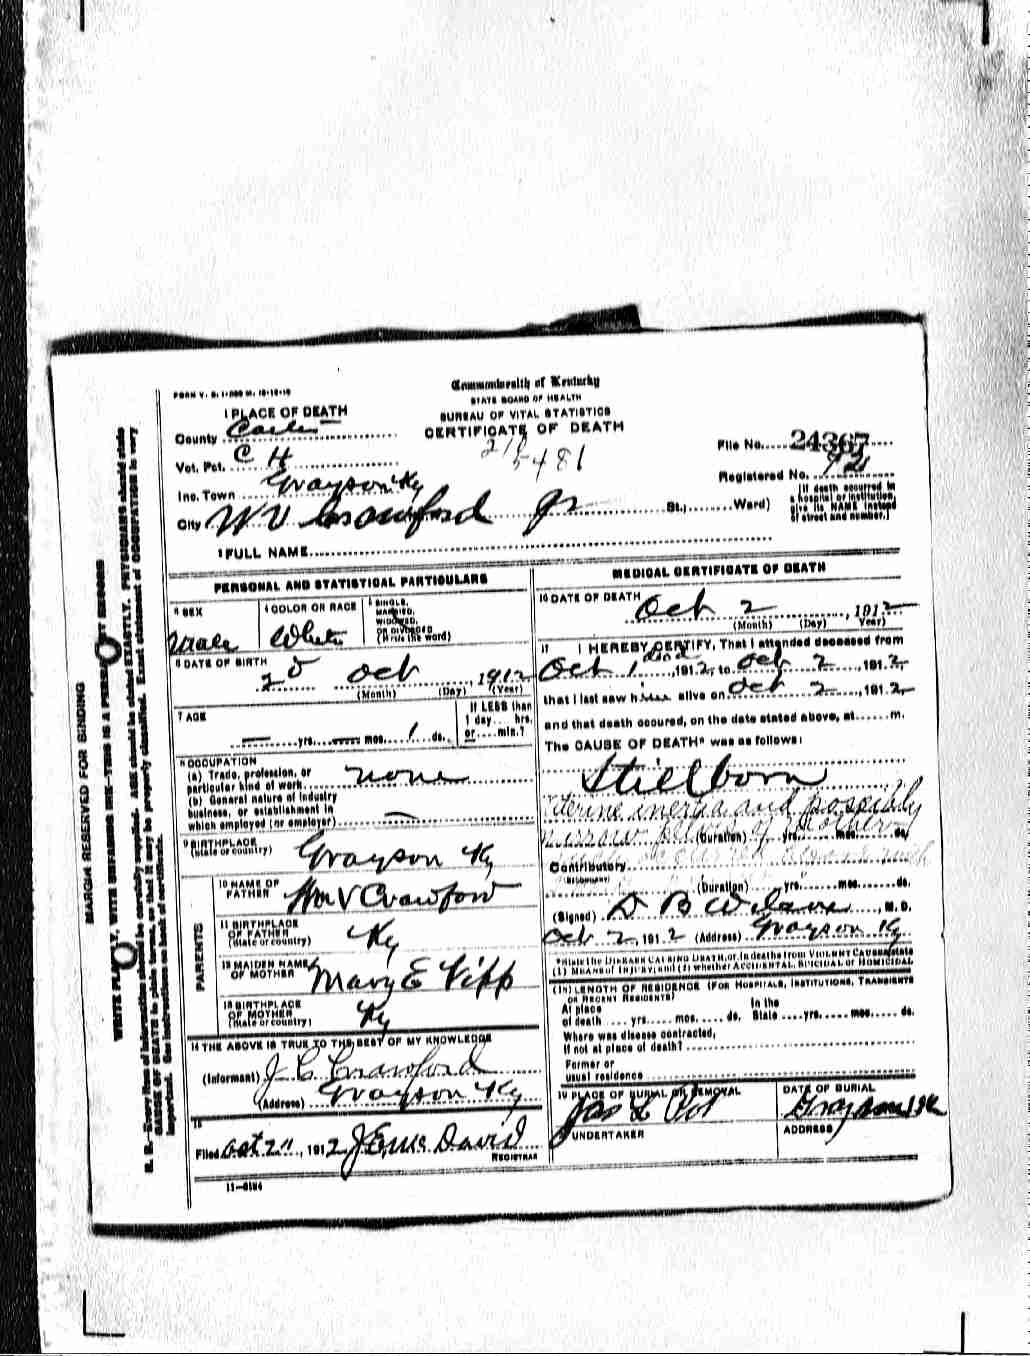 FORM V. S. 1-
Commonwealth of Kentucky
STATE BOARD OF HEALTH
BUREAU OF VITAL STATISTICS
CERTIFICATE OF DEATH
1 PLACE OF DEATH
County Carter
Vot. Pct. C H
Inc. Town Grayson Ky
City St.; Ward)
W V Crawford Jr
File No. 24367
Registered No.
[If death occurred in
a hospital or institution,
give its NAME instead
of street and number.]
2 FULL NAME
PERSONAL AND STATISTICAL PARTICULARS
3 SEX
Male
4 COLOR OR RACE
White
5 SINGLE,
MARRIED,
WIDOWED,
OR DIVORCED
(Write the word)
6 DATE OF BIRTH
Oct , 1912
(Month) (Day) (Year)
7 AGE
— yrs. — mos. 1 ds.
If LESS than
1 day.... hrs.
or.....min.?
8 OCCUPATION
(a) Trade, profession, or
particular kind of work none
(b) General nature of industry
business, or establishment in
which employed (or employer) —
9 BIRTHPLACE
(State or country) Grayson Ky
PARENTS
10 NAME OF
FATHER Wm V Crawford
11 BIRTHPLACE
OF FATHER
(State or country) Ky
12 MAIDEN NAME
OF MOTHER Mary E
13 BIRTHPLACE
OF MOTHER
(State or country) Ky
14 THE ABOVE IS TRUE TO THE BEST OF MY KNOWLEDGE
(Informant) J C Crawford
(Address) Grayson Ky
15
Filed Oct 2, 1912
REGISTRAR
11-
MEDICAL CERTIFICATE OF DEATH
16 DATE OF DEATH
Oct 2, 1912
(Month) (Day) (Year)
17 I HEREBY CERTIFY, That I attended deceased from
Oct 1, 1912, to Oct 2, 1912
that I last saw him alive on Oct 2, 1912
and that death occured, on the date stated above, at......m.
The CAUSE OF DEATH* was as follows:
Stillborn
uterine inertia and possibly
narrow pelvis of mother
(Duration) yrs. mos. ds.
Contributory
(SECONDARY)
(Duration) yrs. mos. ds.
(Signed) D B , M. D.
Oct 2, 1912 (Address) Grayson Ky
*State the DISEASE CAUSING DEATH, or, in deaths from VIOLENT CAUSES, state
(1) MEANS of INJURY; and (2) whether ACCIDENTAL, SUICIDAL or HOMICIDAL.
(18) LENGTH OF RESIDENCE (FOR HOSPITALS, INSTITUTIONS, TRANSIENTS
OR RECENT RESIDENTS)
At place In the
of death .... yrs. mos. ds. State .... yrs. mos. ds.
Where was disease contracted,
If not at place of death?
Former or
usual residence
19 PLACE OF BURIAL OR REMOVAL
DATE OF BURIAL
UNDERTAKER
ADDRESS
MARGIN RESERVED FOR BINDING
WRITE PLAINLY, WITH UNFADING INK—THIS IS A PERMANENT RECORD
N. B.—Every item of information should be carefully supplied. AGE should be stated EXACTLY. PHYSICIANS should state
CAUSE OF DEATH in plain terms, so that it may be properly classified. Exact statement of OCCUPATION is very
important. See instructions on back of certificate.